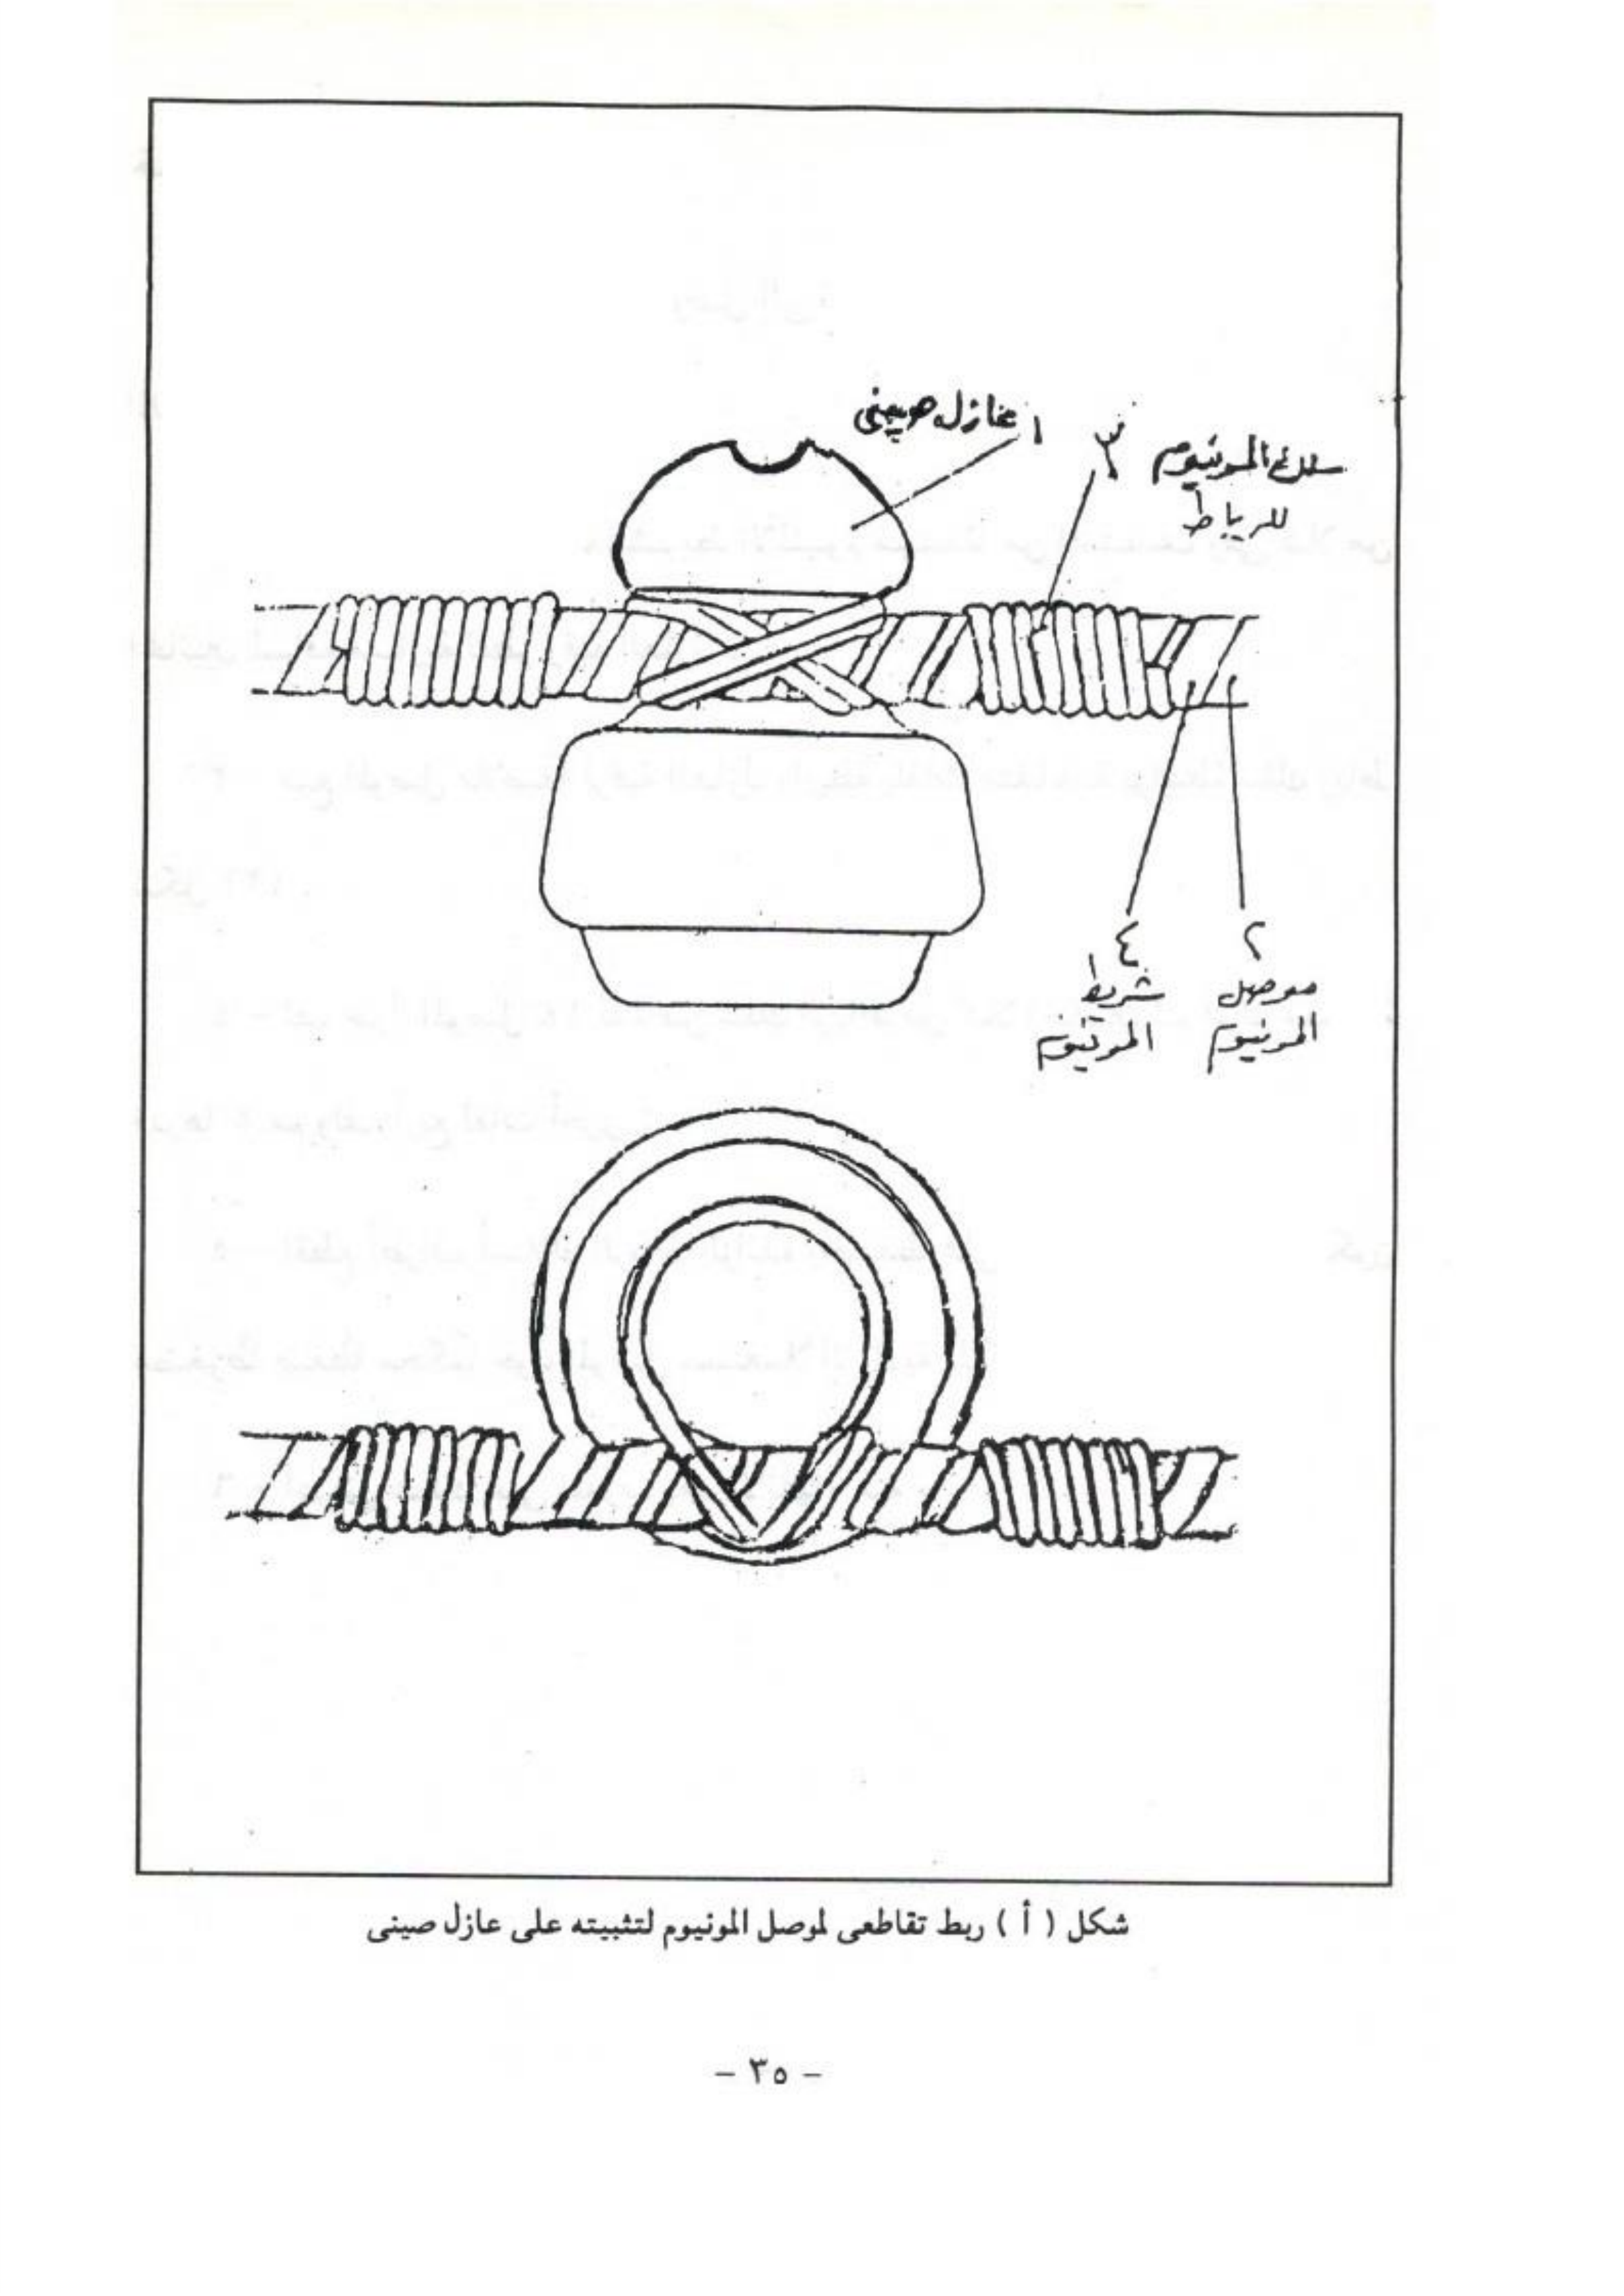 ١ عازل صينى
٣ سلك المونيوم
للرباط
٤
شريط
المونيوم
٢
موصل
المونيوم
شكل ( أ ) ربط تقاطعى لموصل المونيوم لتثبيته على عازل صينى
- ٣٥ -